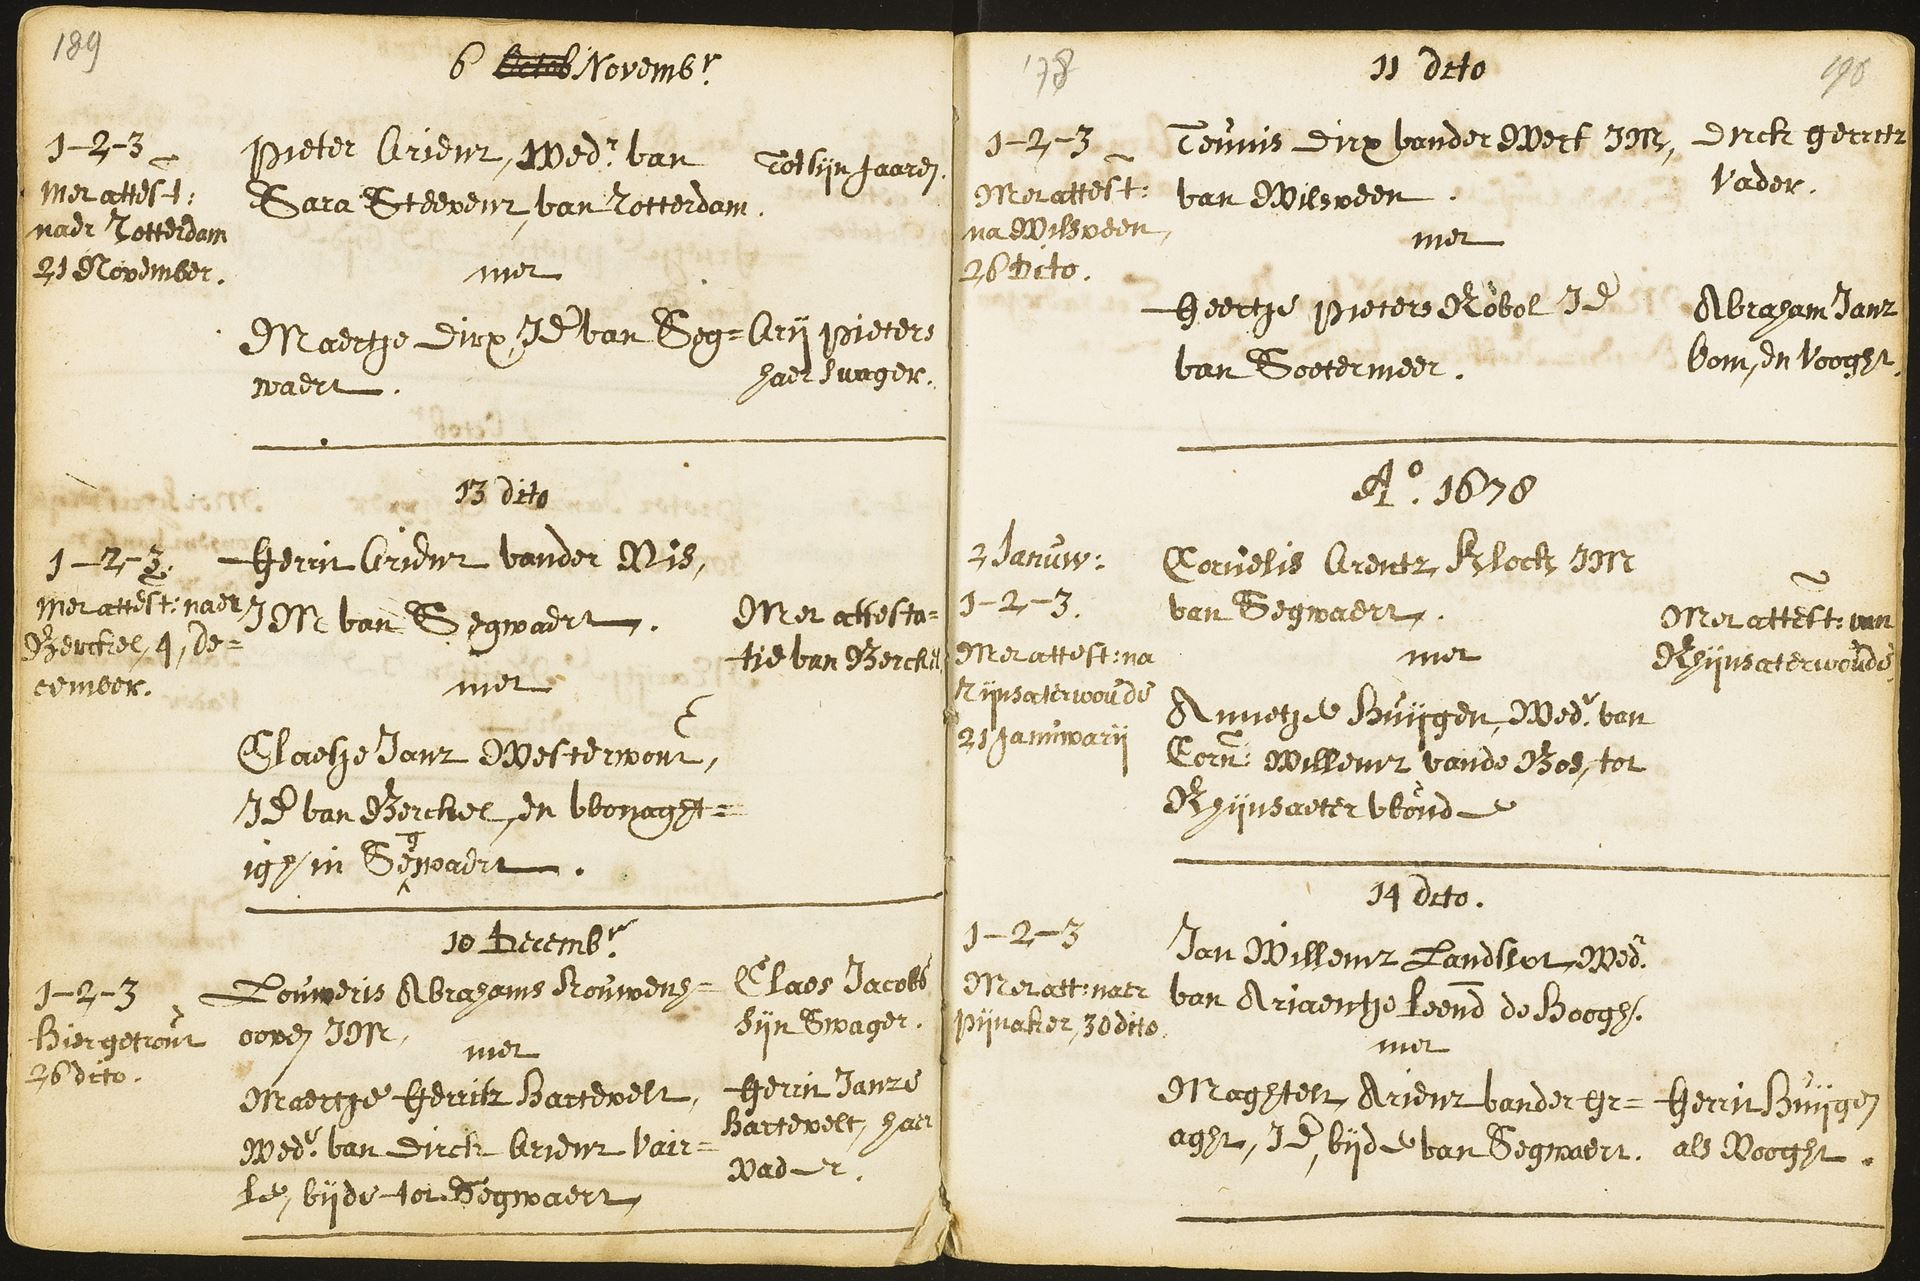 189
6 Octob Novemb.r
1-2-3
Met attest:
naer Rotterdam
21 November.
Pieter Ariensz, Wed.r van
Sara Steevensz, van Rotterdam.
Tot sijn jaaren.
met
Maertje Dirx, JD van Seg=
waert.
Arij Pieters
haer Swager.
13 dito
1-2-3.
Met attest: naer
Berckel, 4, de=
cember.
Gerrit Ariensz vander Nis,
JM van Segwaert.
Met attesta=
tie van Berckel
met
Claesje Jansz Westerwout,
JD van Berckel, en woonaght=
igh in Segwaert.
10 Decemb.r
1-2-3
Hier getrout
26 dito.
Louweris Abrahams Kouwenh=
ooven JM,
Claes Jacobs
Sijn Swager.
met
Maertje Gerritz Hartevelt,
Wed.r van Dirck Ariensz Vair=
le, bijde tot Segwaert
Gerrit Janze
Hartevelt, haer
vader.
178
11 dito
190
1-2-3
Met attest:
na Wilsveen,
26 dito.
Teunis Dirx vander Werf JM,
van Wilsveen.
Dirck Gerritz
Vader.
met
Geertje Pieters Robol JD
van Soetermeer.
Abraham Jansz
Oom, en Vooght.
A.o 1678
2 Januw:
1-2-3.
Met attest: na
Rijnsaterwoude
21 Januwarij
Cornelis Arentz Klock JM
van Segwaert.
met
Met attest: van
Rhijnsaterwoude
Annetje Huijgen, Wed.r van
Corn: Willemsz vande Bos, tot
Rhijnsaeter Woude
14 dito.
1-2-3
Met att: naer
Pijnaker, 30 dito
Jan Willemsz Landslot, Wed.r
van Ariaentje Leend de Hoogh.
met
Maghtelt Ariensz vander Gr=
aght, JD, bijde van Segwaert.
Gerrit Huijgen
als Vooght.